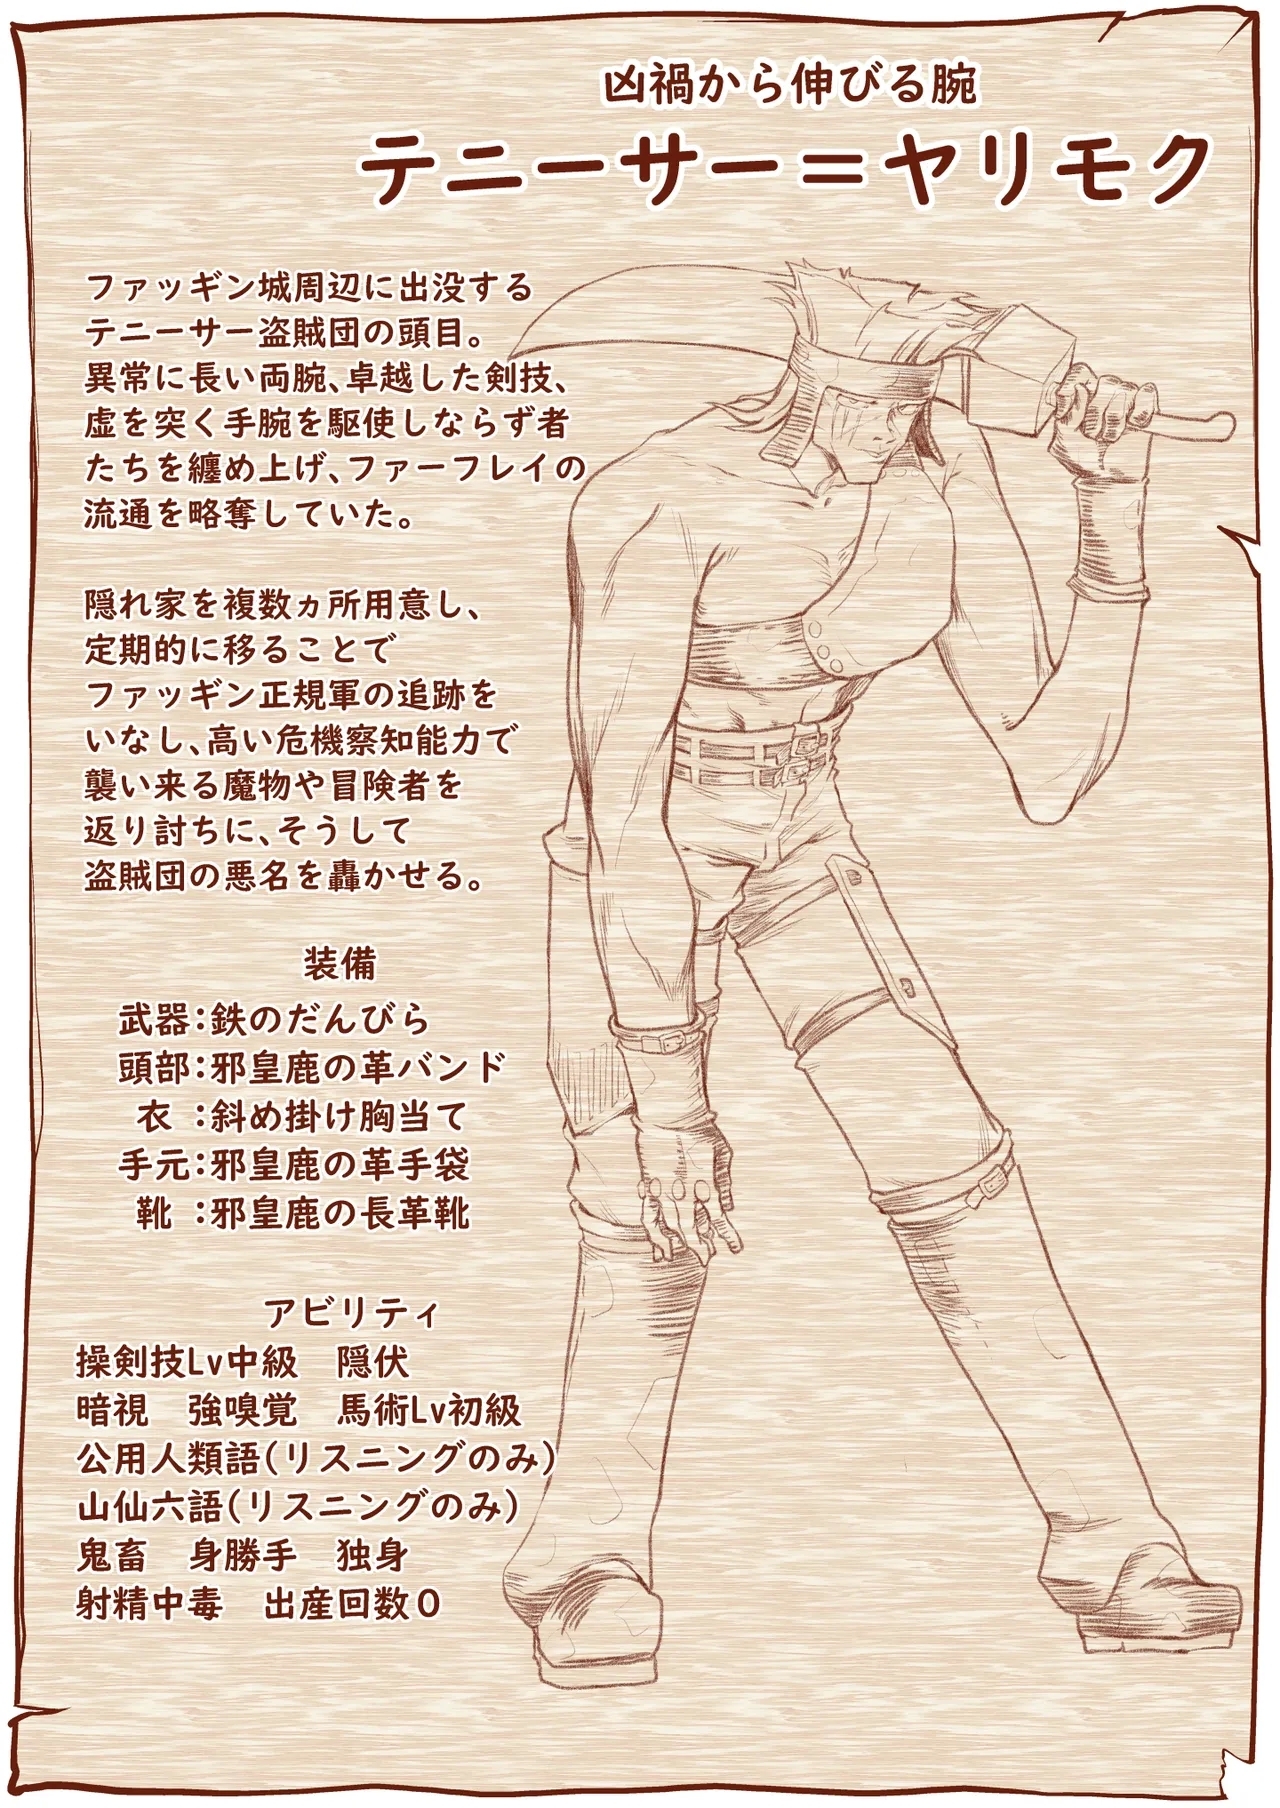 凶禍から伸びる腕
テニーサー＝ヤリモク
ファッギン城周辺に出没する
テニーサー盗賊団の頭目。
異常に長い両腕、卓越した剣技、
虚を突く手腕を駆使しならず者
たちを纏め上げ、ファーフレイの
流通を略奪していた。
隠れ家を複数ヵ所用意し、
定期的に移ることで
ファッギン正規軍の追跡を
いなし、高い危機察知能力で
襲い来る魔物や冒険者を
返り討ちに、そうして
盗賊団の悪名を轟かせる。
装備
武器：鉄のだんびら
頭部：邪皇鹿の革バンド
衣　：斜め掛け胸当て
手元：邪皇鹿の革手袋
靴　：邪皇鹿の長革靴
アビリティ
操剣技Lv中級　隠伏
暗視　強嗅覚　馬術Lv初級
公用人類語（リスニングのみ）
山仙六語（リスニングのみ）
鬼畜　身勝手　独身
射精中毒　出産回数０